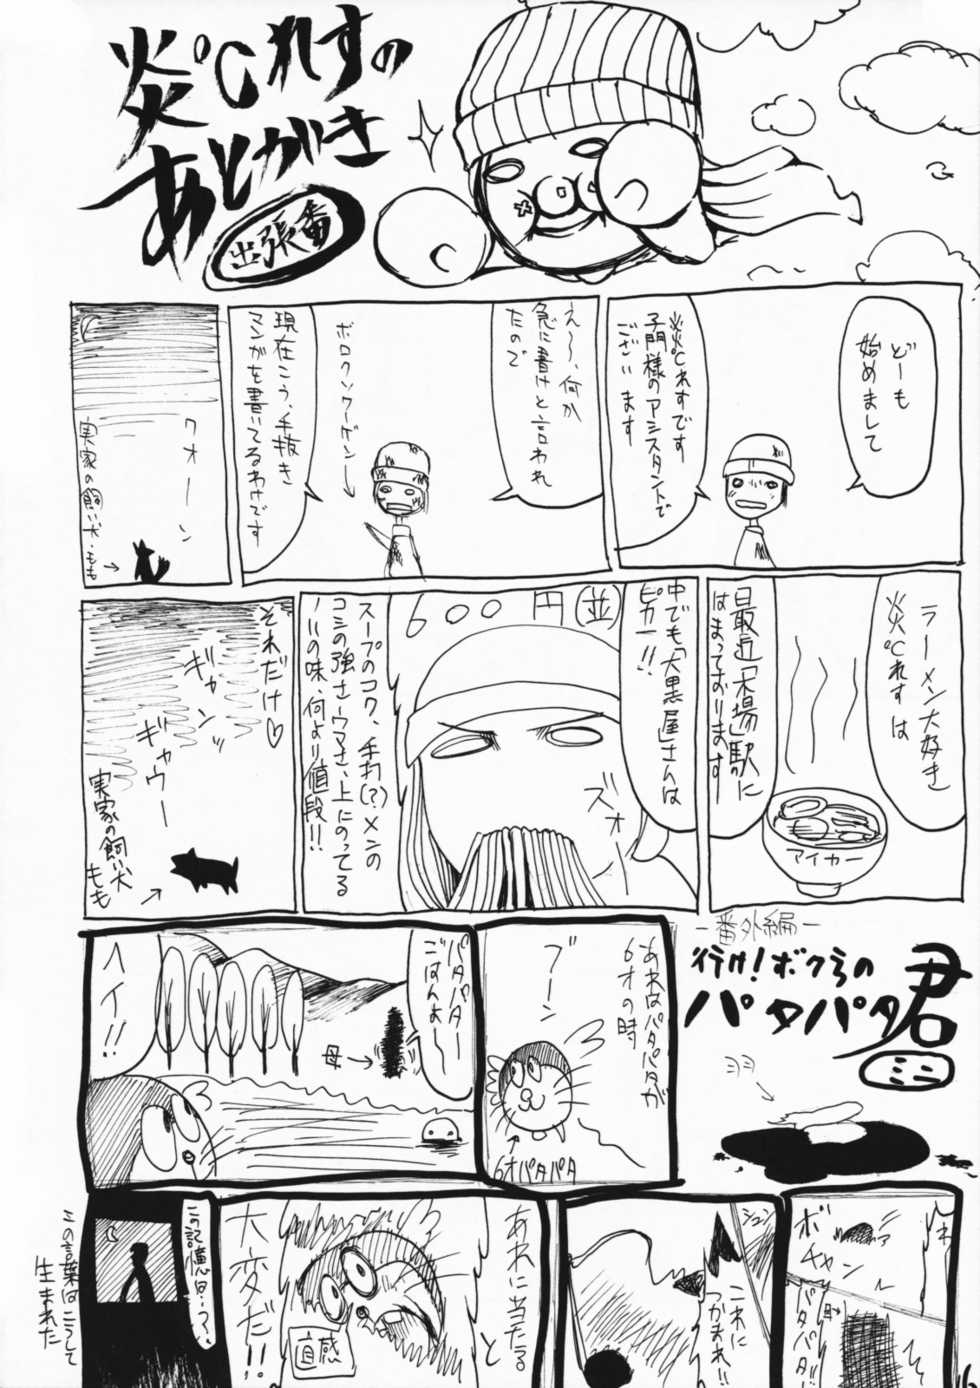 炎℃れすの
あとがき
出張番
どーも
始めまして
炎℃れすです
子門様のアシスタントで
ございます
え〜、何か
急に書けと言われ
たので
ボロクソワーゲン
現在こう、手抜き
マンガを書いてるわけです
クオーン
実家の飼い犬・もも
ラーメン大好き
炎℃れすは
最近「木場」駅に
はまっております
アイカー
中でも「大黒屋」さんは
ピカ一!!
600円(並)
ズオー
スープのコク、手打(?)メンの
コシの強さ・ウマさ、上にのってる
ノリの味、何より値段!!
それだけ♡
ギャン
ギャウー
実家の飼い犬
もも
-番外編-
行け!ボクらの
パタパタ君
ミニ
あれはパタパタが
6才の時
ブーン
6才パタパタ
パタパター
ごはんよー
母→
ハイ!!
ボチャン
母
パタパタ!!
シュン
これに
つかまれ!!
あれに当たる
と
大変だ!!
直感
この記憶は…?
この言葉はこうして
生まれた